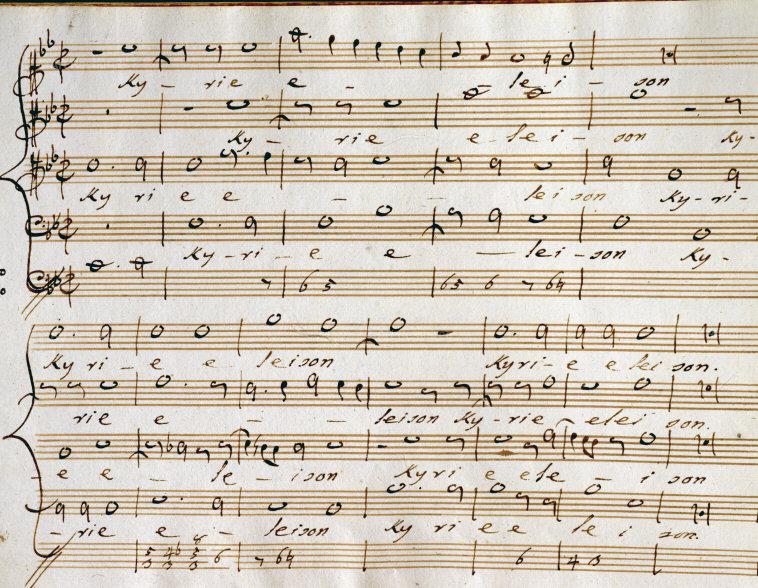 Ky - rie e - - lei - son
Ky - rie e - lei - son Ky -
Ky ri e e - - lei son Ky - ri -
Ky - ri - e e - lei - son Ky -
7 6 5 65 6 7 64
Ky ri - e e leison Kyri - e e lei son.
rie e - - leison Ky - rie - elei son.
- e e - le - ison Kyri e ele - i son
- rie e - leison Ky ri e e le i son.
6 7 64 6 4 3